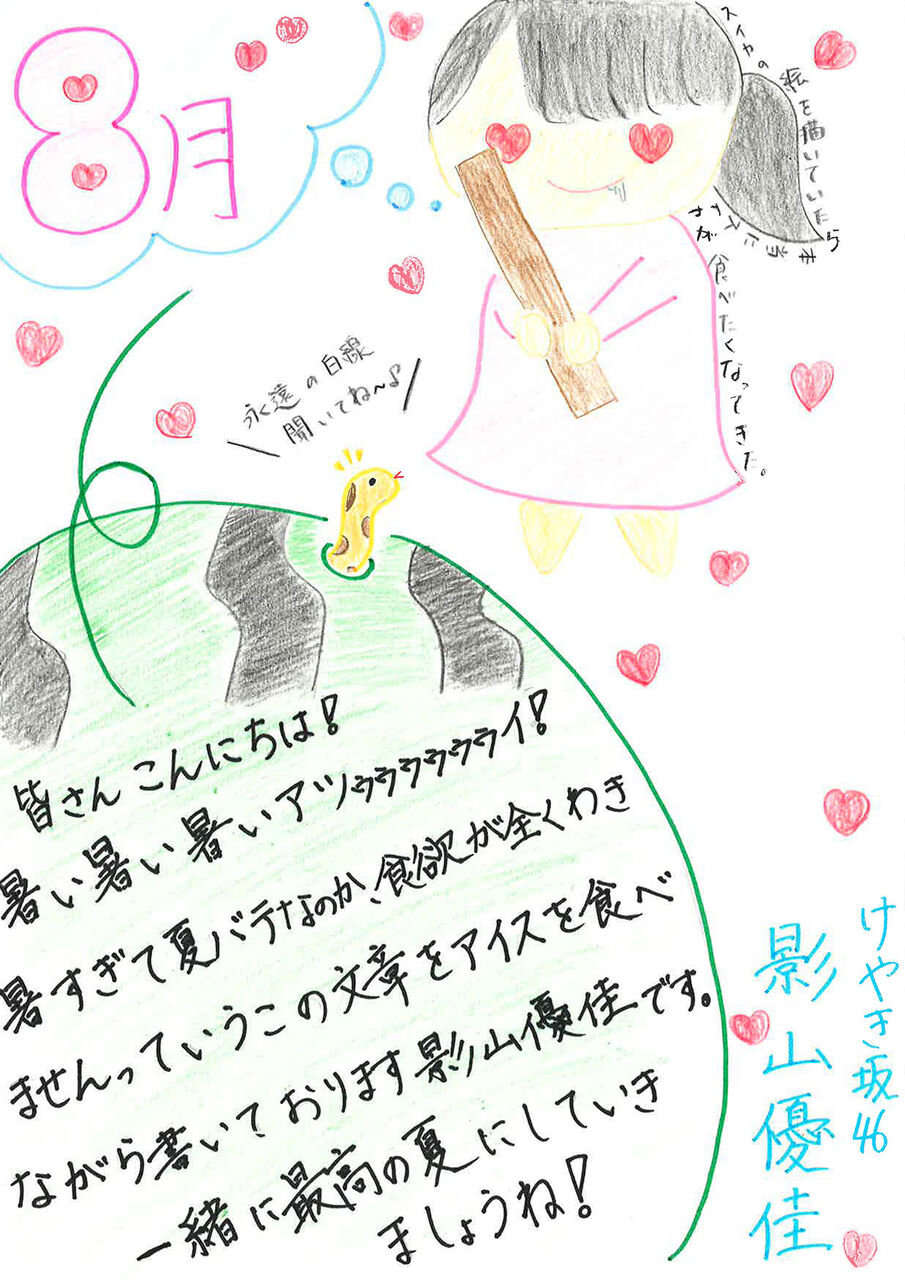 8月
スイカの絵を描いていたら
永遠の白線
聞いてね〜♪
皆さんこんにちは!
暑い暑い暑いアツゥゥゥゥゥゥイ!
暑すぎて夏バテなのか、食欲が全くわき
ませんっていうこの文章をアイスを食べ
ながら書いております影山優佳です。
一緒に最高の夏にしていき
ましょうね!
けやき坂46
影山優佳